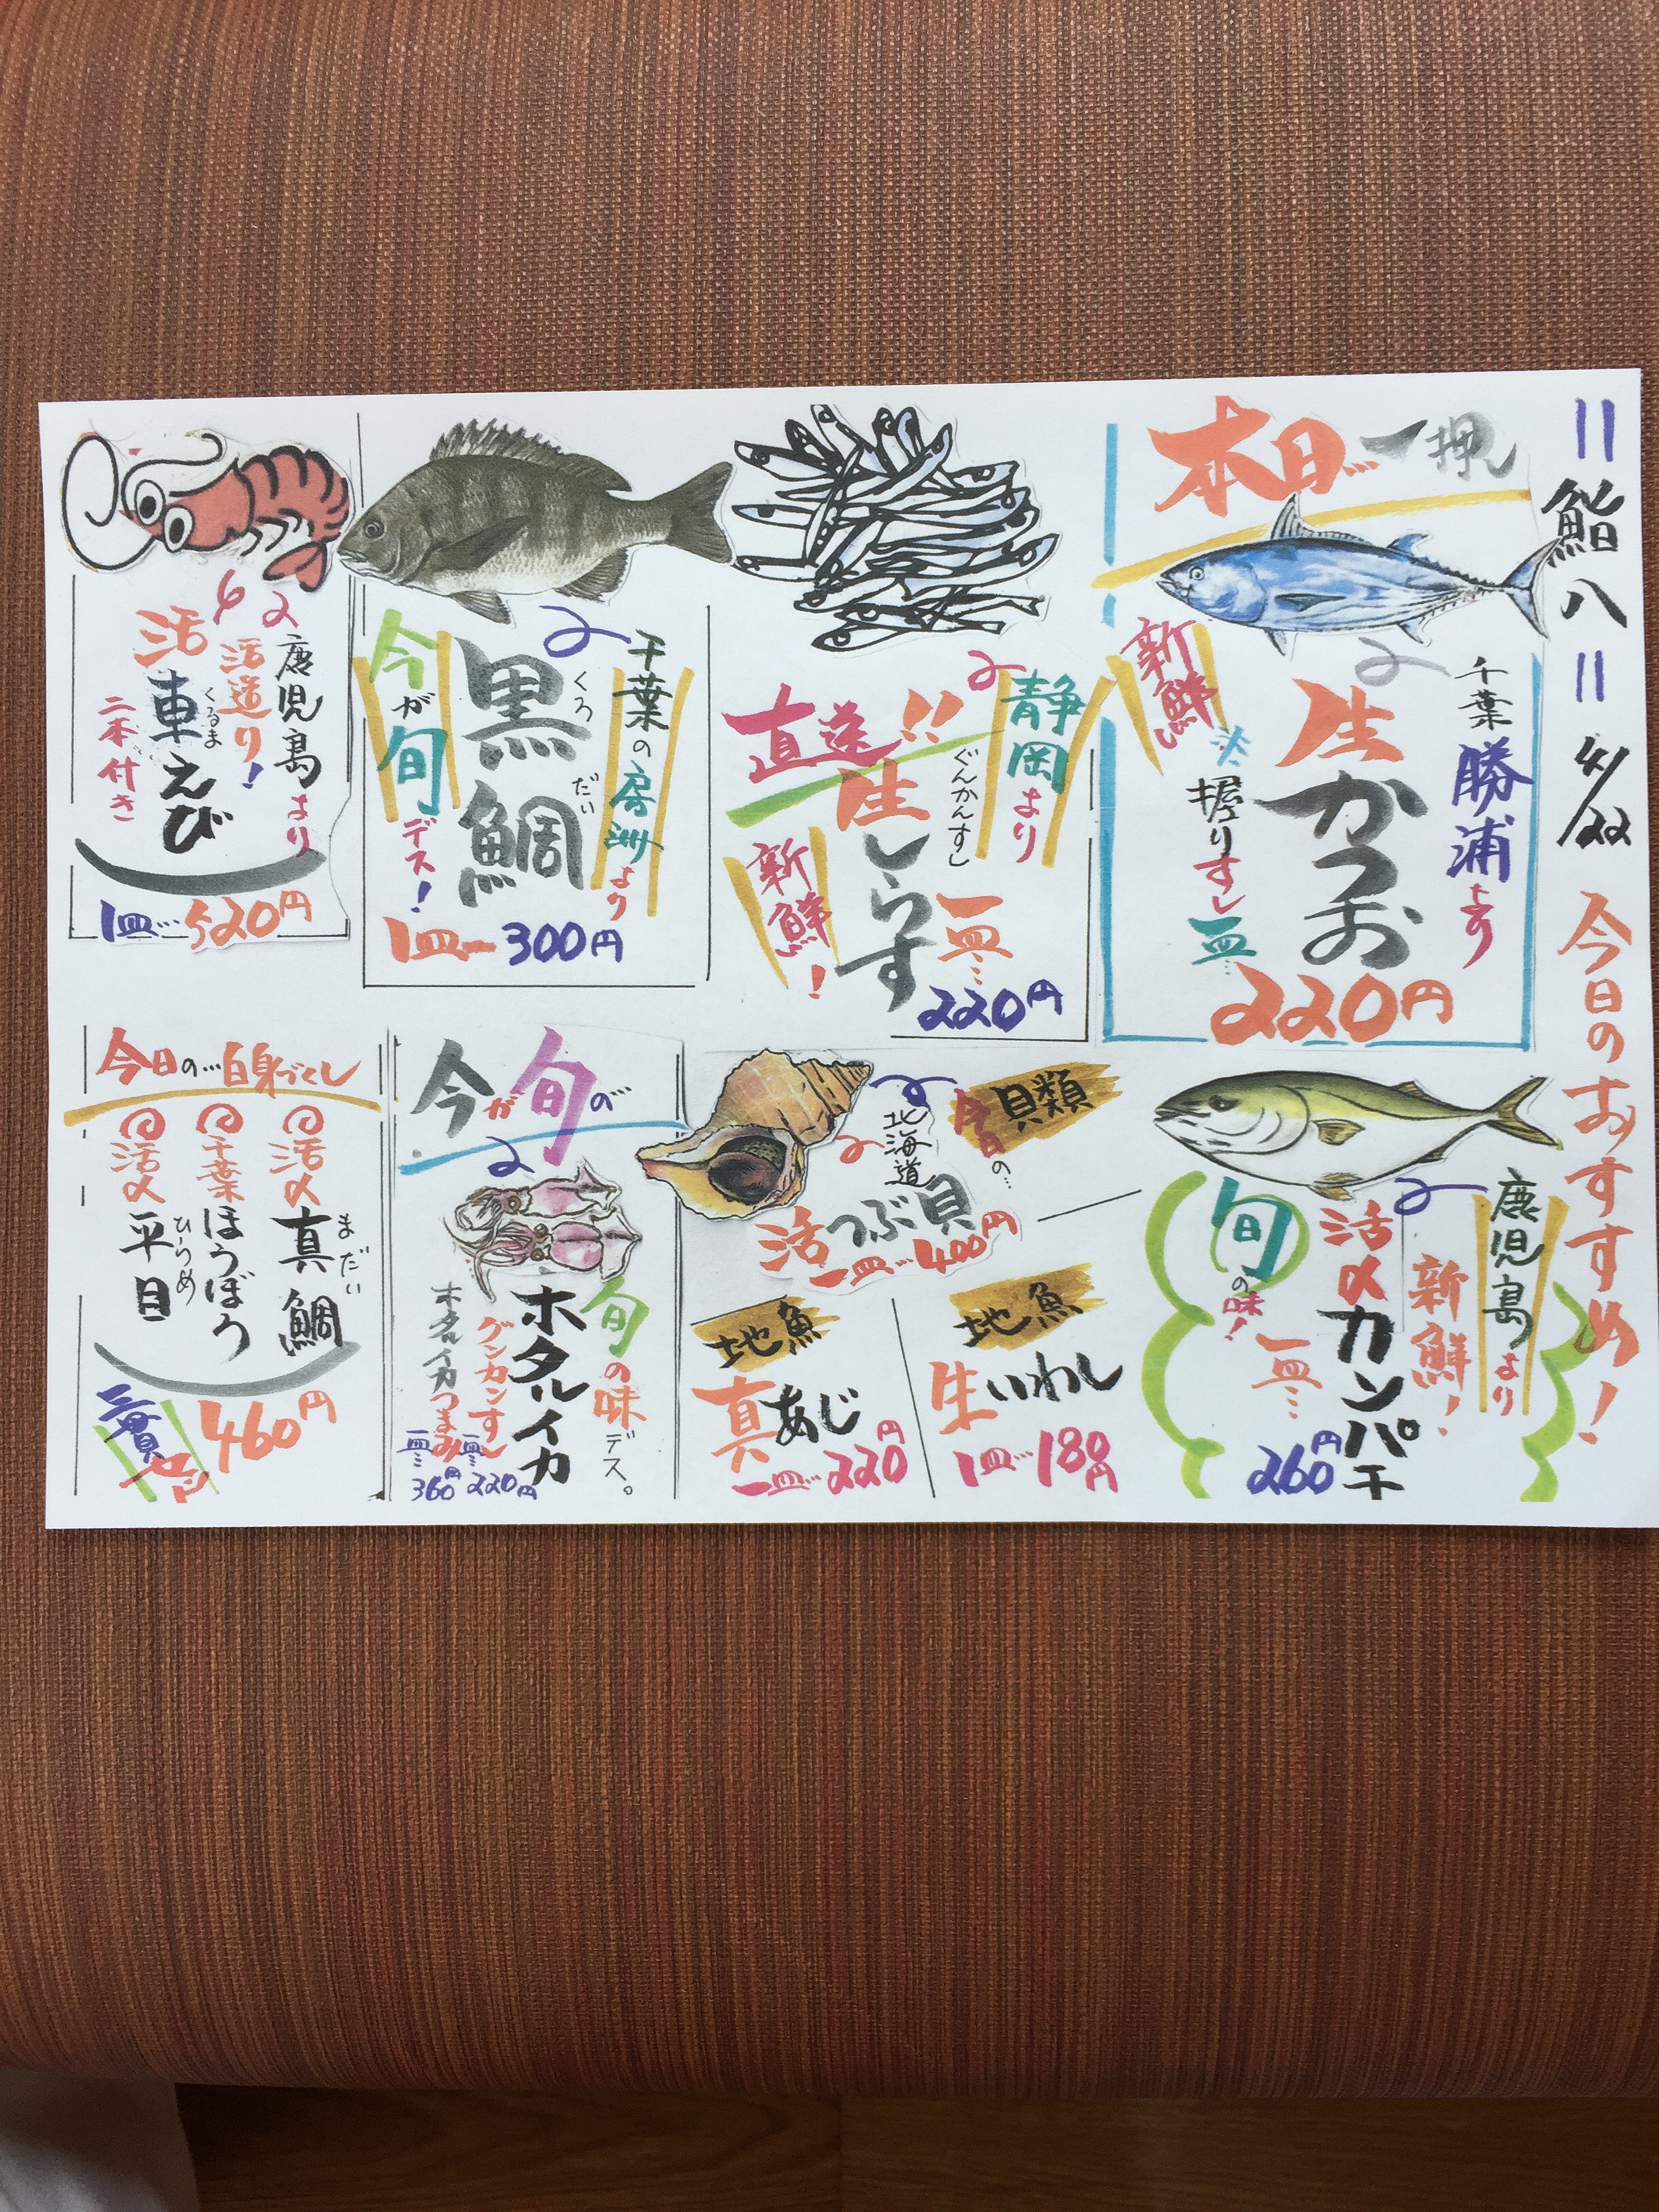 鮨八
4/22
今日のおすすめ!
本日一押
千葉勝浦より
生かつお
新鮮
握りすし
一皿…
220円
静岡より
ぐんかんすし
直送!!
生しらす
新鮮!
一皿…
220円
千葉の房洲より
くろ だい
黒鯛
今が旬デス!
1皿ー300円
鹿児島より
活造り!
活車えび
くるま
二本付き
1皿…520円
鹿児島より
新鮮!
活〆カンパチ
旬の味!
一皿…
260円
今日の…
貝類
北海道
活つぶ貝
一皿…400円
地魚
生いわし
1皿…180円
地魚
真あじ
一皿…220円
今が旬の
旬の味デス。
ホタルイカ
グンカンすし
一皿…220円
ホタルイカつまみ
一皿…360円
今日の…白身づくし
活〆真鯛
まだい
千葉ほうぼう
活〆平目
ひらめ
三貫
460円